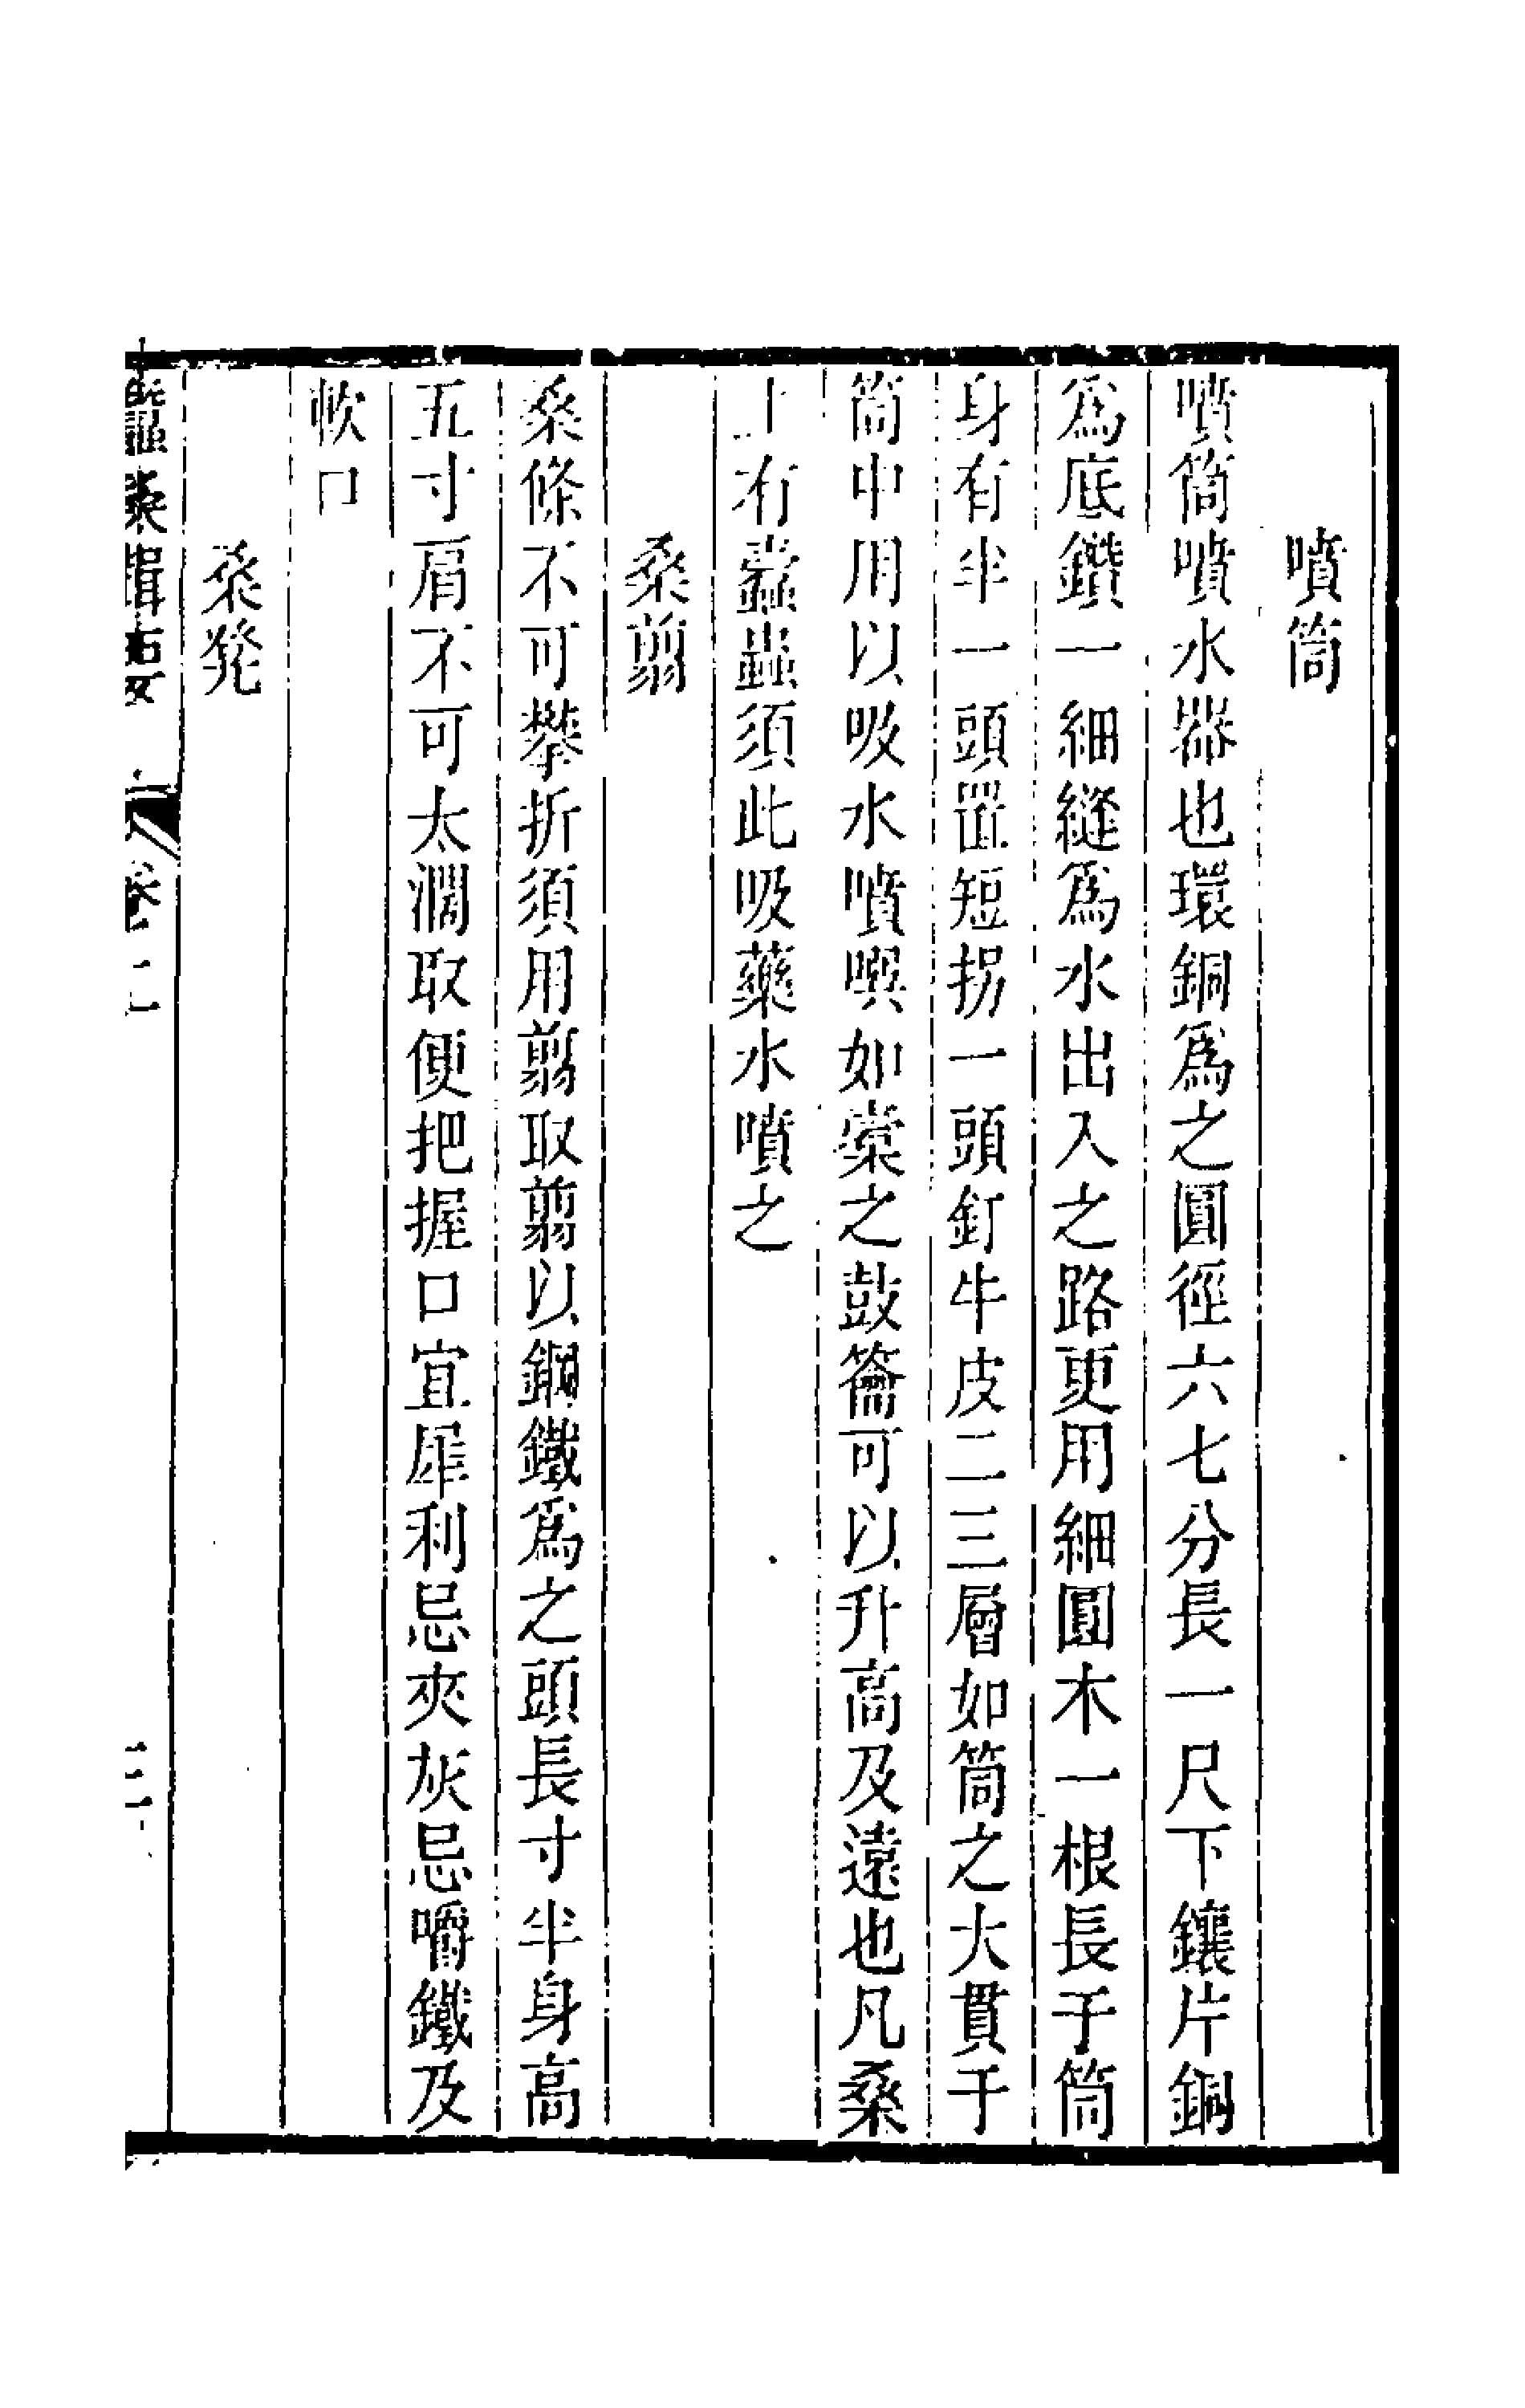 噴筒
噴筒噴水器也環銅爲之圓徑六七分長一尺下鑲片銅
爲底鑽一細縫爲水出入之路更用細圓木一根長于筒
身有半一頭置短拐一頭釘牛皮二三層如筒之大貫于
筒中用以吸水噴噀如槖之鼓籥可以升高及遠也凡桑
上有蠹蟲須此吸藥水噴之
桑剪
桑條不可攀折須用剪取剪以鋼鐵爲之頭長寸半身高
五寸肩不可太濶取便把握口宜犀利忌夾灰忌嚼鐵及
軟口
桑凳
蠶桑輯要 卷二 三